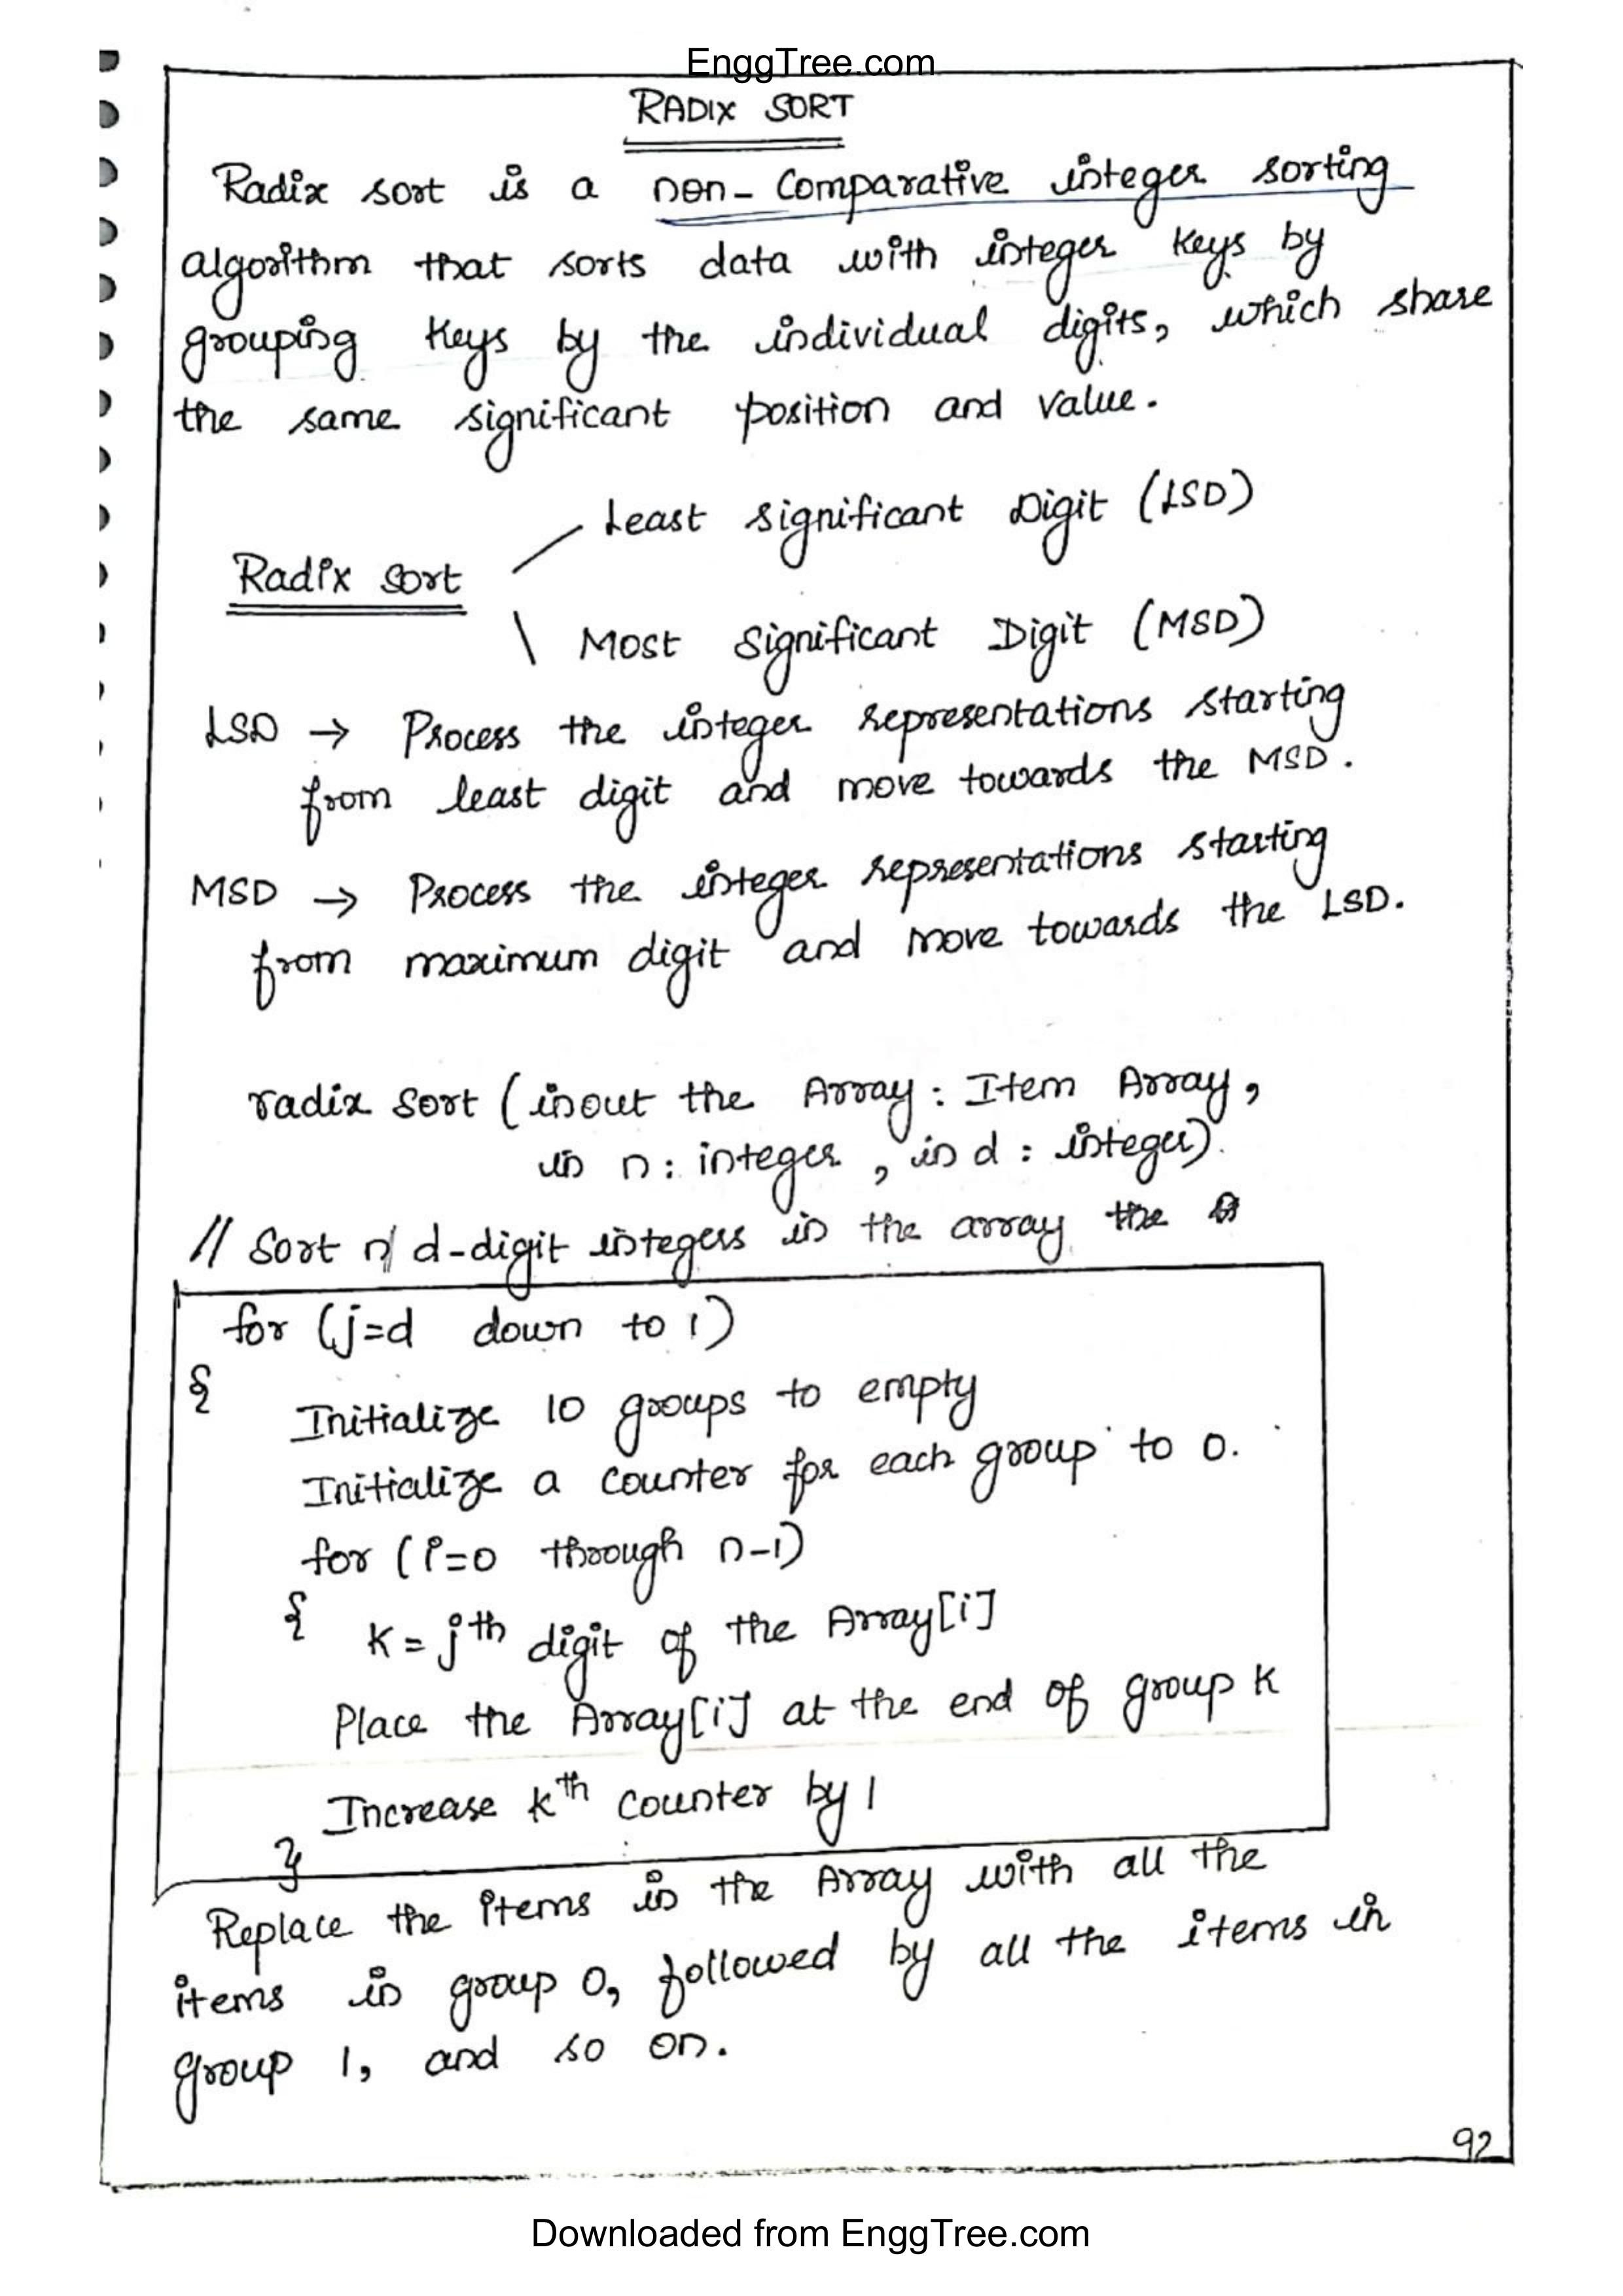 EnggTree.com
RADIX SORT
Radix sort is a non-Comparative integer sorting
algorithm that sorts data with integer keys by
grouping keys by the individual digits, which share
the same significant position and value.
Least significant Digit (LSD)
Radix Sort
Most Significant Digit (MSD)
LSD → Process the integer representations starting
from least digit and move towards the MSD.
MSD → Process the integer representations starting
from maximum digit and move towards the LSD.
radix sort (inout the Array : Item Array,
in n : integer, in d : integer).
// Sort n/ d-digit integers in the array the
for (j=d down to 1)
{
Initialize 10 groups to empty
Initialize a counter for each group to 0.
for (i=0 through n-1)
{ K = jth digit of the Array[i]
Place the Array[i] at the end of group K
Increase kth counter by 1
}
Replace the items in the Array with all the
items in group 0, followed by all the items in
group 1, and so on.
92
Downloaded from EnggTree.com